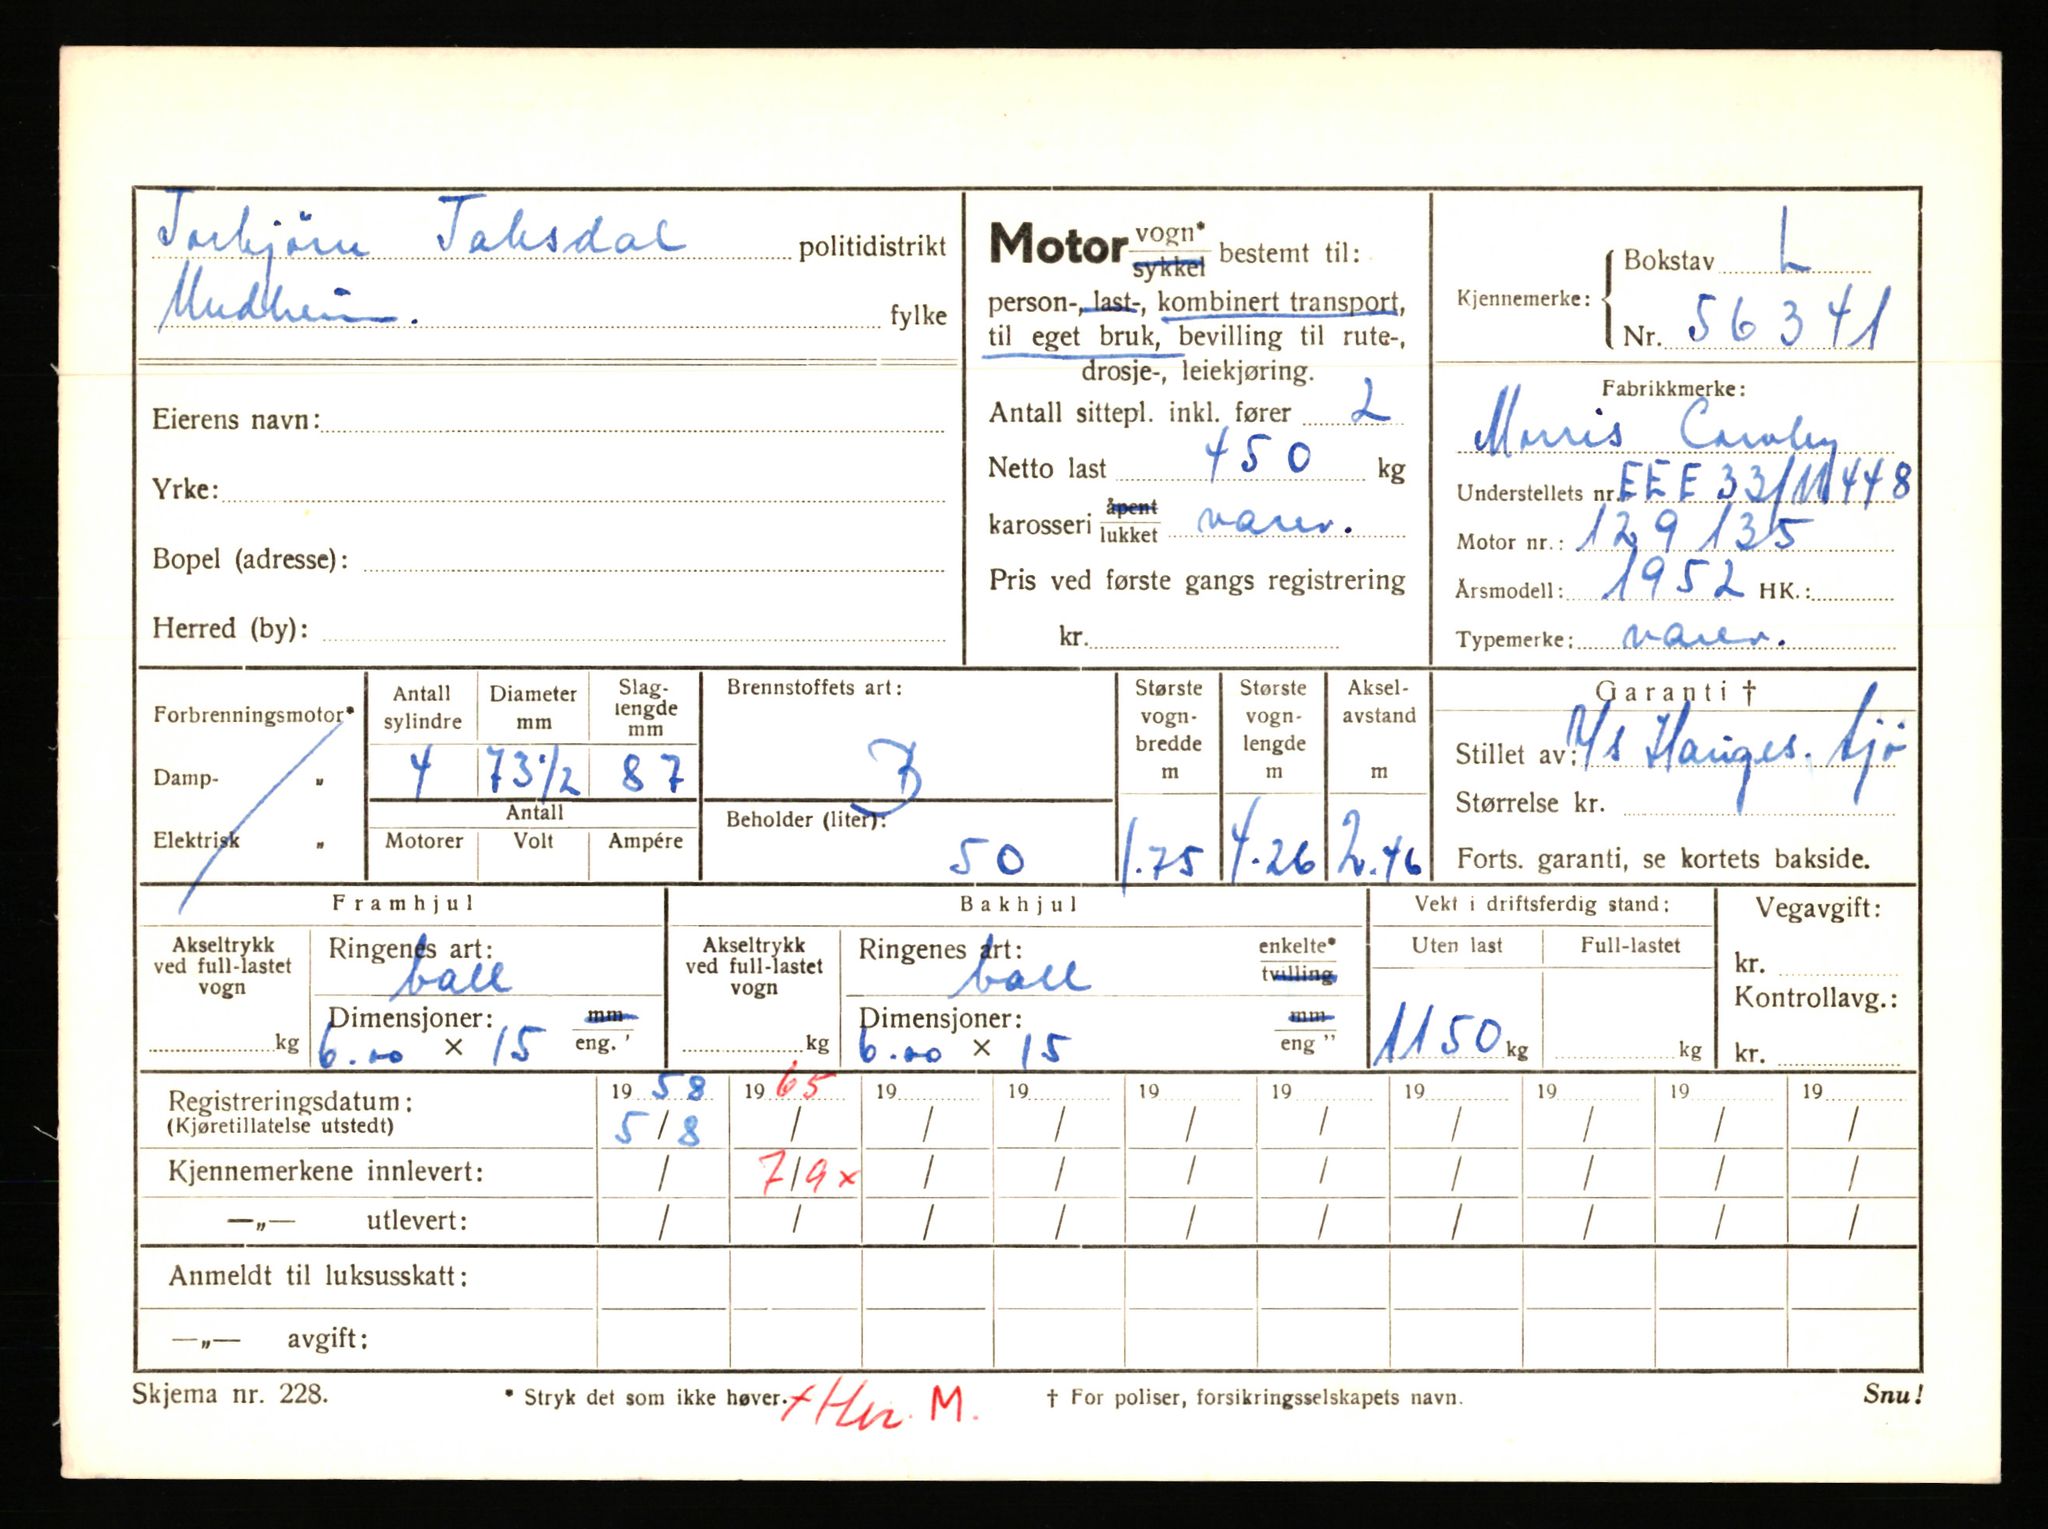 Torbjörn Taksdal politidistrikt
Undheim. fylke
Eierens navn:
Yrke:
Bopel (adresse):
Herred (by):
Motor vogn* sykkel bestemt til:
person-, last-, kombinert transport,
til eget bruk, bevilling til rute-,
drosje-, leiekjøring.
Antall sittepl. inkl. fører 2
Netto last 450 kg
karosseri åpent lukket varev.
Pris ved første gangs registrering
kr.
Kjennemerke: Bokstav L
Nr. 56341
Fabrikkmerke:
Morris Cowley
Understellets nr. EEE 33/11448
Motor nr.: 129135
Årsmodell: 1952 HK.:
Typemerke: varev.
Forbrenningsmotor*
Damp- „
Elektrisk „
Antall sylindre 4
Diameter mm 73 1/2
Slaglengde mm 87
Antall
Motorer Volt Ampére
Brennstoffets art: B
Beholder (liter): 50
Største vognbredde m 1.75
Største vognlengde m 4.26
Akselavstand m 2.46
Garanti †
Stillet av: Hauges. Sjö
Størrelse kr.
Forts. garanti, se kortets bakside.
Framhjul
Akseltrykk ved full-lastet vogn kg
Ringenes art: ball
Dimensjoner: 6.00 × 15 mm eng. '
Bakhjul
Akseltrykk ved full-lastet vogn kg
Ringenes art: ball enkelte* tvilling
Dimensjoner: 6.00 × 15 mm eng ''
Vekt i driftsferdig stand:
Uten last Full-lastet
1150 kg kg
Vegavgift:
kr.
Kontrollavg.:
kr.
Registreringsdatum: 19 58 19 65 19 19 19 19 19 19 19 19
(Kjøretillatelse utstedt) 5/8 / / / / / / / / /
Kjennemerkene innlevert: / 7/9 x / / / / / / / /
—„— utlevert: / / / / / / / / / /
Anmeldt til luksusskatt:
—„— avgift:
Skjema nr. 228. * Stryk det som ikke høver. M. † For poliser, forsikringsselskapets navn. Snu!